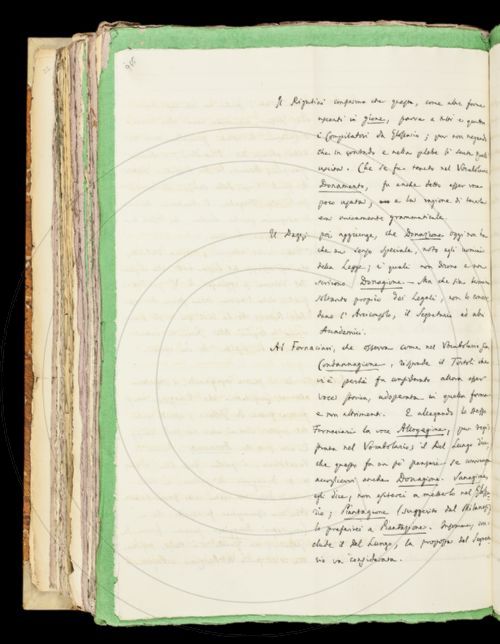 Il Rigutini conferma che questa, come altre forme
uscenti in gione, parve a tutti e quattro
i Compilatori da Glossario; pur non negando
che in contado e nella plebe si senta
Che se fu tenuto nel Vocabolario
Donamento, fu anche detto esser voce
poco usata; e la ragione di tenerla
era puramente grammaticale.
Il Dazzi poi aggiunge, che Donazione oggi non ha
che un senso speciale, noto agli uomini
della Legge; i quali non dicono e non
scrivono Donagione. — Ma che sia termine
soltanto proprio dei Legali, non lo
l'Arciconsolo, il Segretario ed altri
Accademici.
Al Fornaciari, che osserva come nel Vocabolario sia
Condannagione, risponde il Tortoli che
vi è perchè fu considerato allora esser
voce storica, adoperata in questa forma
e non altrimenti. E allegando lo stesso
Fornaciari la voce Allegagione, pur
nel Vocabolario; il Del Lungo dice,
che questo fa un po' pensare se convenga
anche Donagione. Sanagione,
egli dice, non esiterei a metterlo nel
Piantagione (suggerito dal Milanesi)
lo preferirei a Piantazione. Insomma, con-
clude il Del Lungo, la proposta del Segreta-
rio va considerata.